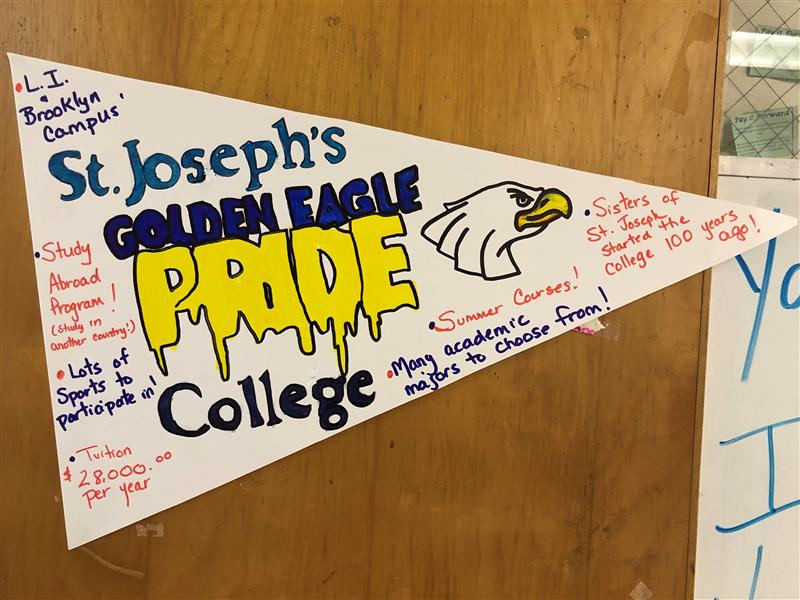 • L.I.
&
Brooklyn
Campus'
St. Joseph's
GOLDEN EAGLE
PRIDE
College
• Study
Abroad
Program!
(Study in
another country!)
• Lots of
Sports to
participate in!
• Tuition
$28,000.00
per year
• Sisters of
St. Joseph
started the
College 100 years
ago!
• Summer Courses!
• Many academic
majors to choose from!
Pay it Forward
Pay it Forward
Yo
I